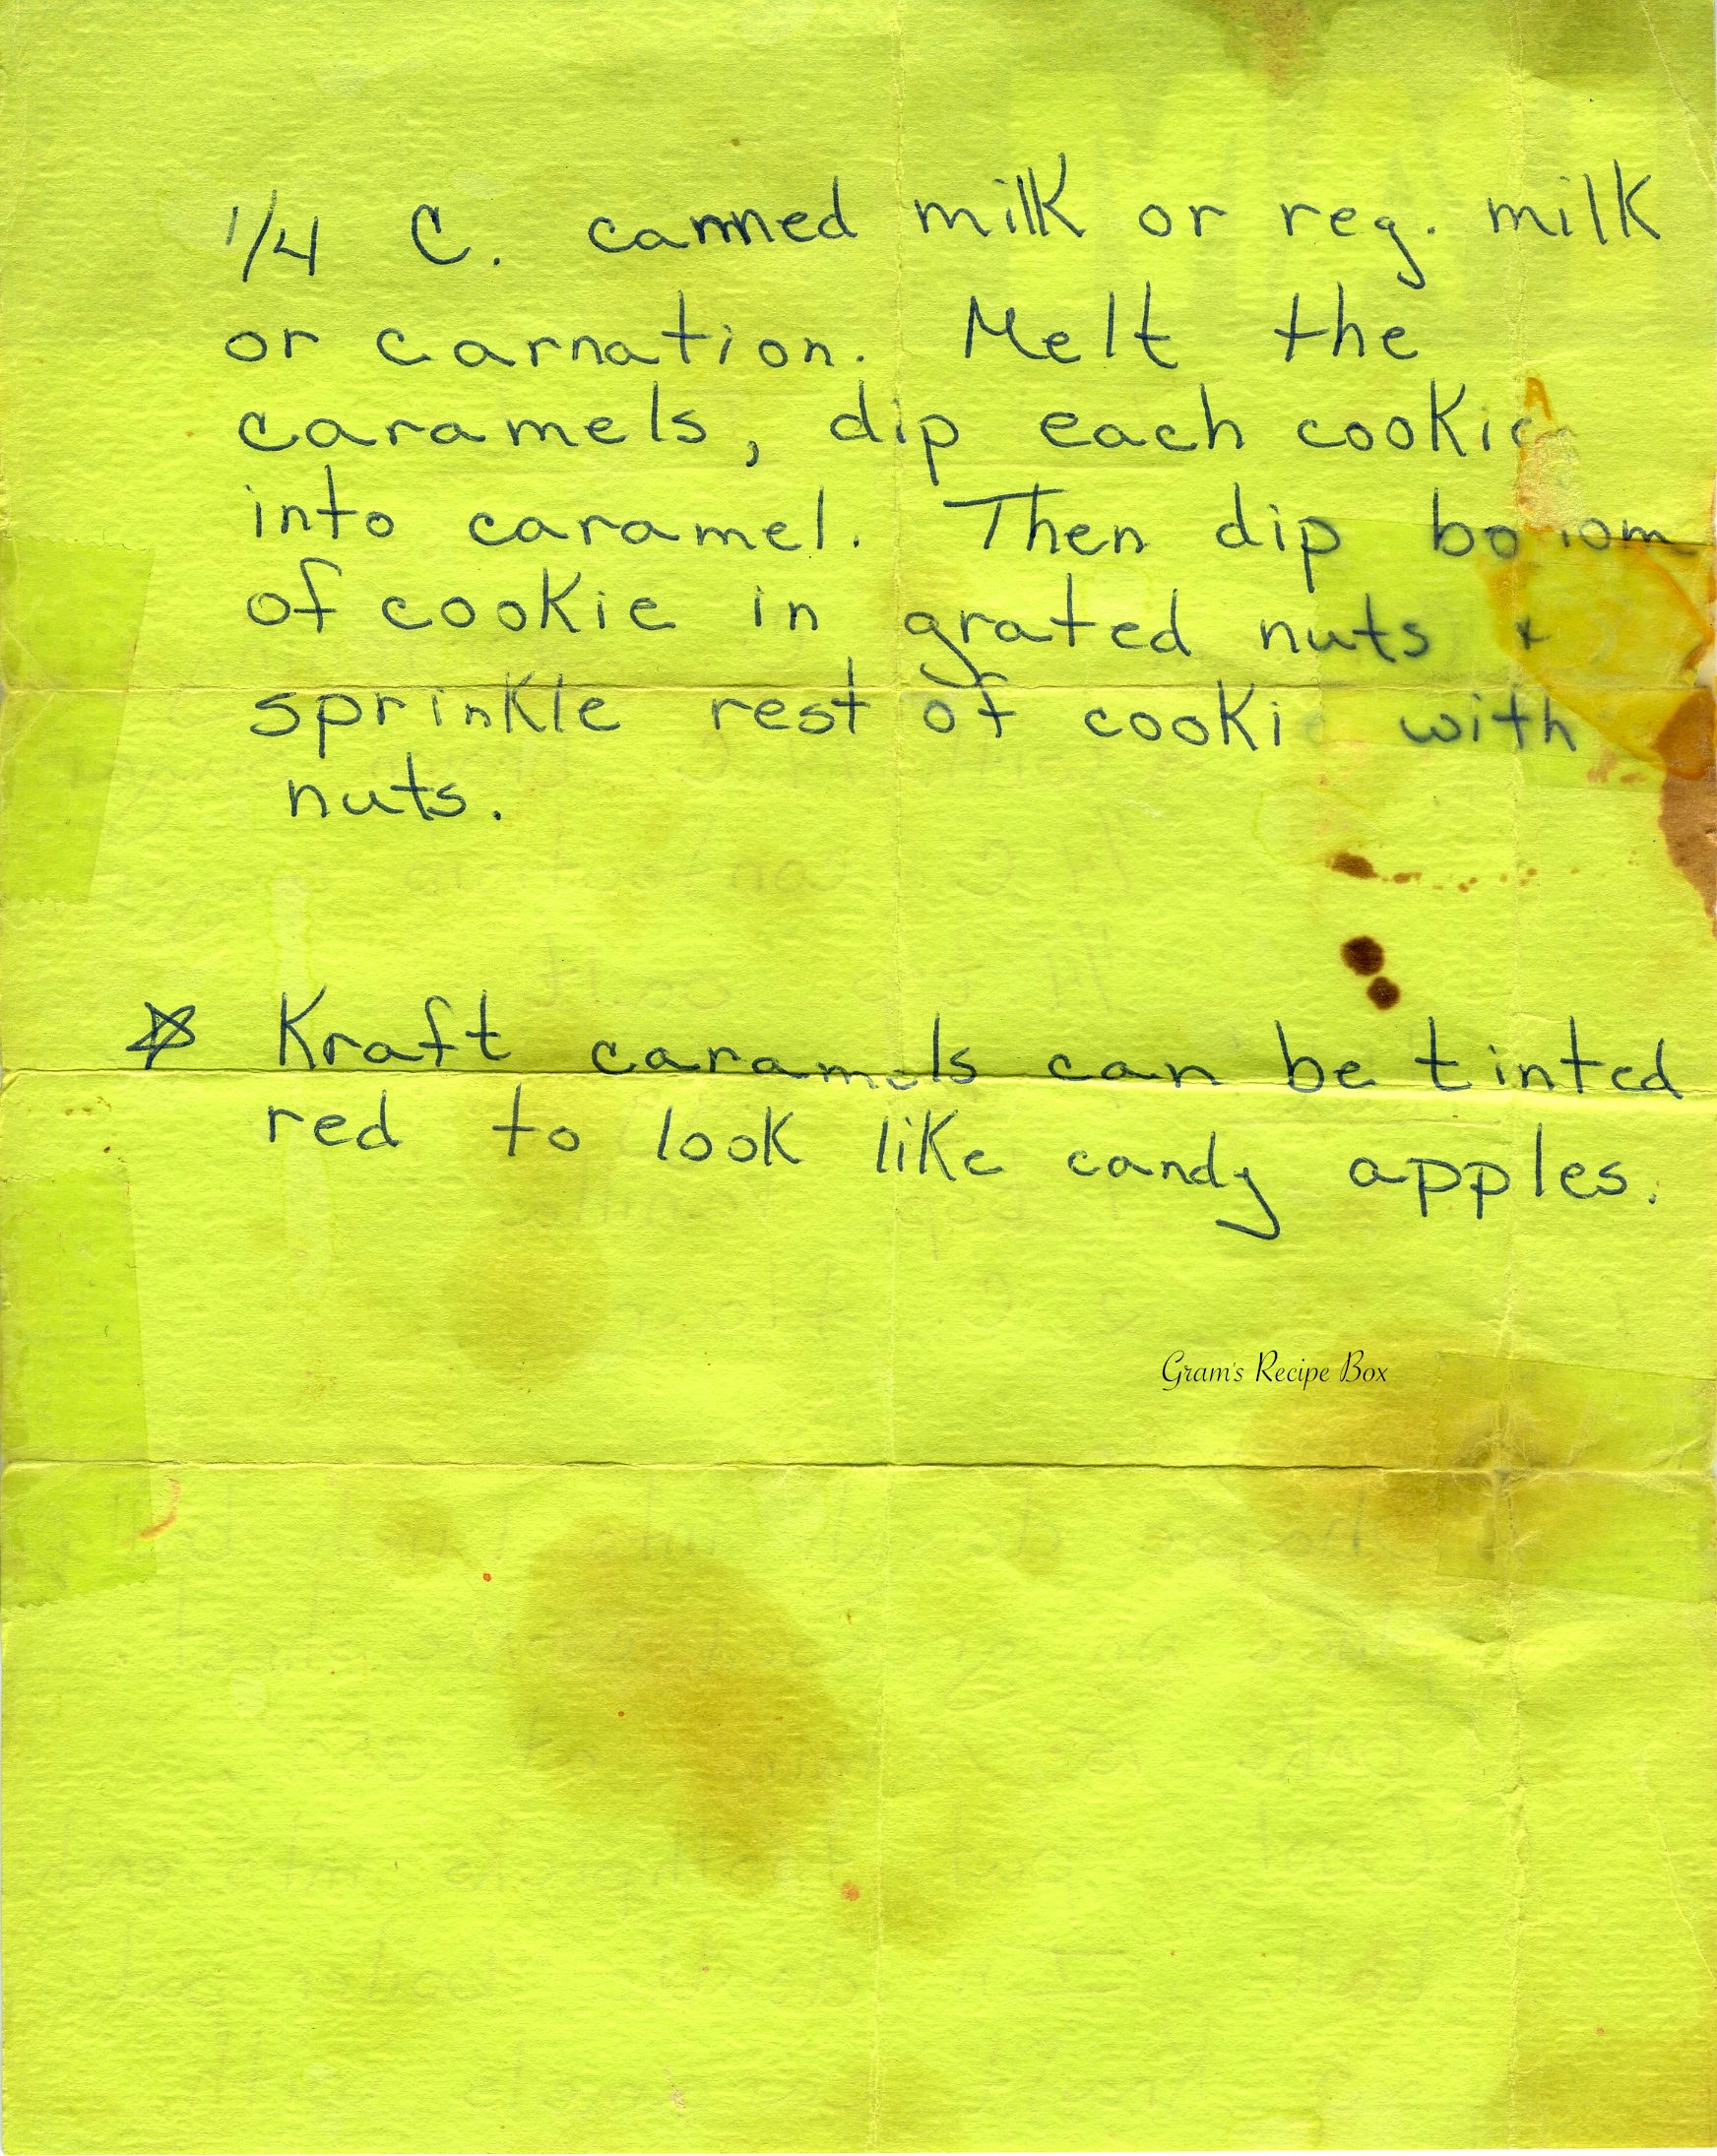 1/4 C. canned milk or reg. milk
or carnation. Melt the
caramels, dip each cookie
into caramel. Then dip bottom
of cookie in grated nuts &
sprinkle rest of cookie with
nuts.
☆ Kraft caramels can be tinted
red to look like candy apples.
Gram's Recipe Box